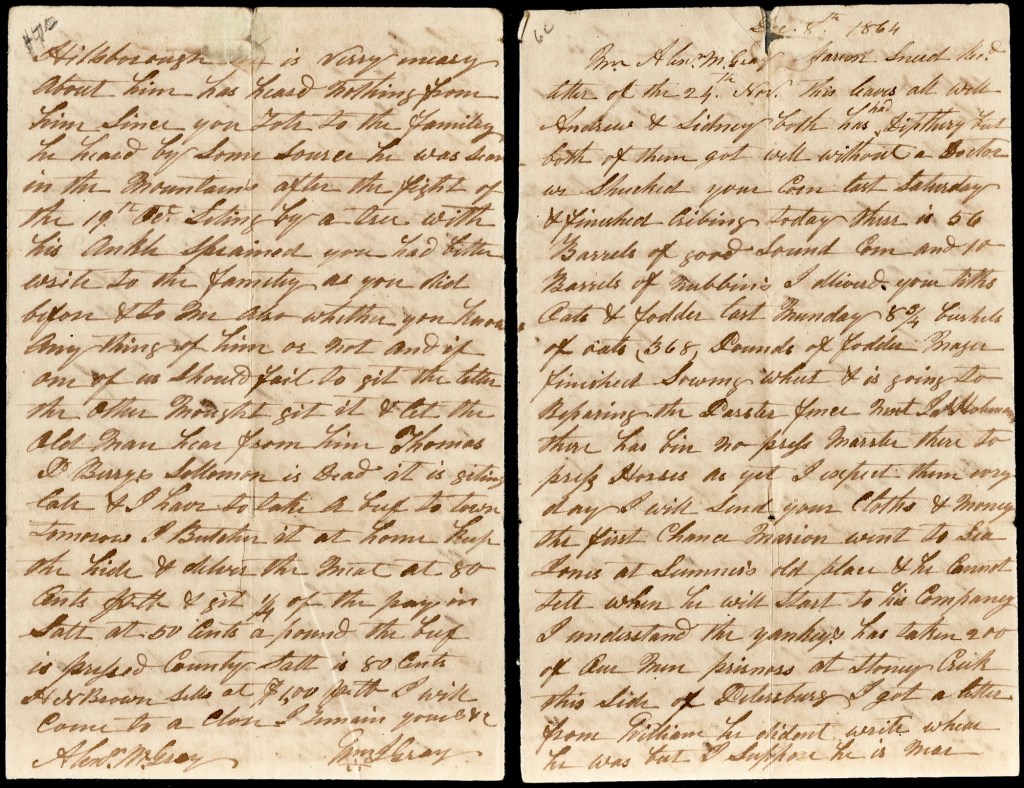 60
Dec. 8th 1864
Mr. Alex. M. Gray Marion Sneed Recd
letter of the 24th Novr. this leaves all well
Andrew & Sidney both has had Dipthury but
both of them got well without a Doctor
we Shucked your Corn last Saturday
& finished Cribing today there is 56
Barrels of good Sound Corn and 10
Barrels of nubbins I diliverd your tithe
Oats & fodder last Munday 8 3/4 bushels
of oats 368 Pounds of fodder
finished Sowing wheat & is going to
Reparing the Parster fence next Jas
there has bin no press Marster there to
press Horses as yet I expect them evry
day I will Send your Cloths & Money
the first Chance Marion went to Sea
Jones at Summers old place & he Cannot
tell when he will Start to his Company
I understand the yankeys has taken 200
of Our Men prisners at Stoney Creek
this Side of Petersburg I got a letter
from William he dident write where
he was but I Suppose he is near
Hillsborough is verry uneasy
About him has heard nothing from
him Since you rote to the familey
he heard by Some Source he was Seen
in the Mountains after the fight of
the 19th Oct. Siting by a tree with
his Ankle Sprained you had better
write to the familey as you did
before & to Me also whether you know
Any thing of him or not and if
one of us Should fail to git the letter
the Other Mought git it & let the
Old Man hear from him Thomas
D. Berrys Solomon is Dead it is giting
late & I have to take a beef to town
tomorow I Butcher it at home keep
the hide & deliver the Meat at 80
Cents & git 1/4 of the pay in
Salt at 50 Cents a pound the beef
is pressed County Salt is 80 Cents
Brown Sells at $1,00 I will
Come to a Close I remain yours &c
Alexr. M. Gray Gray